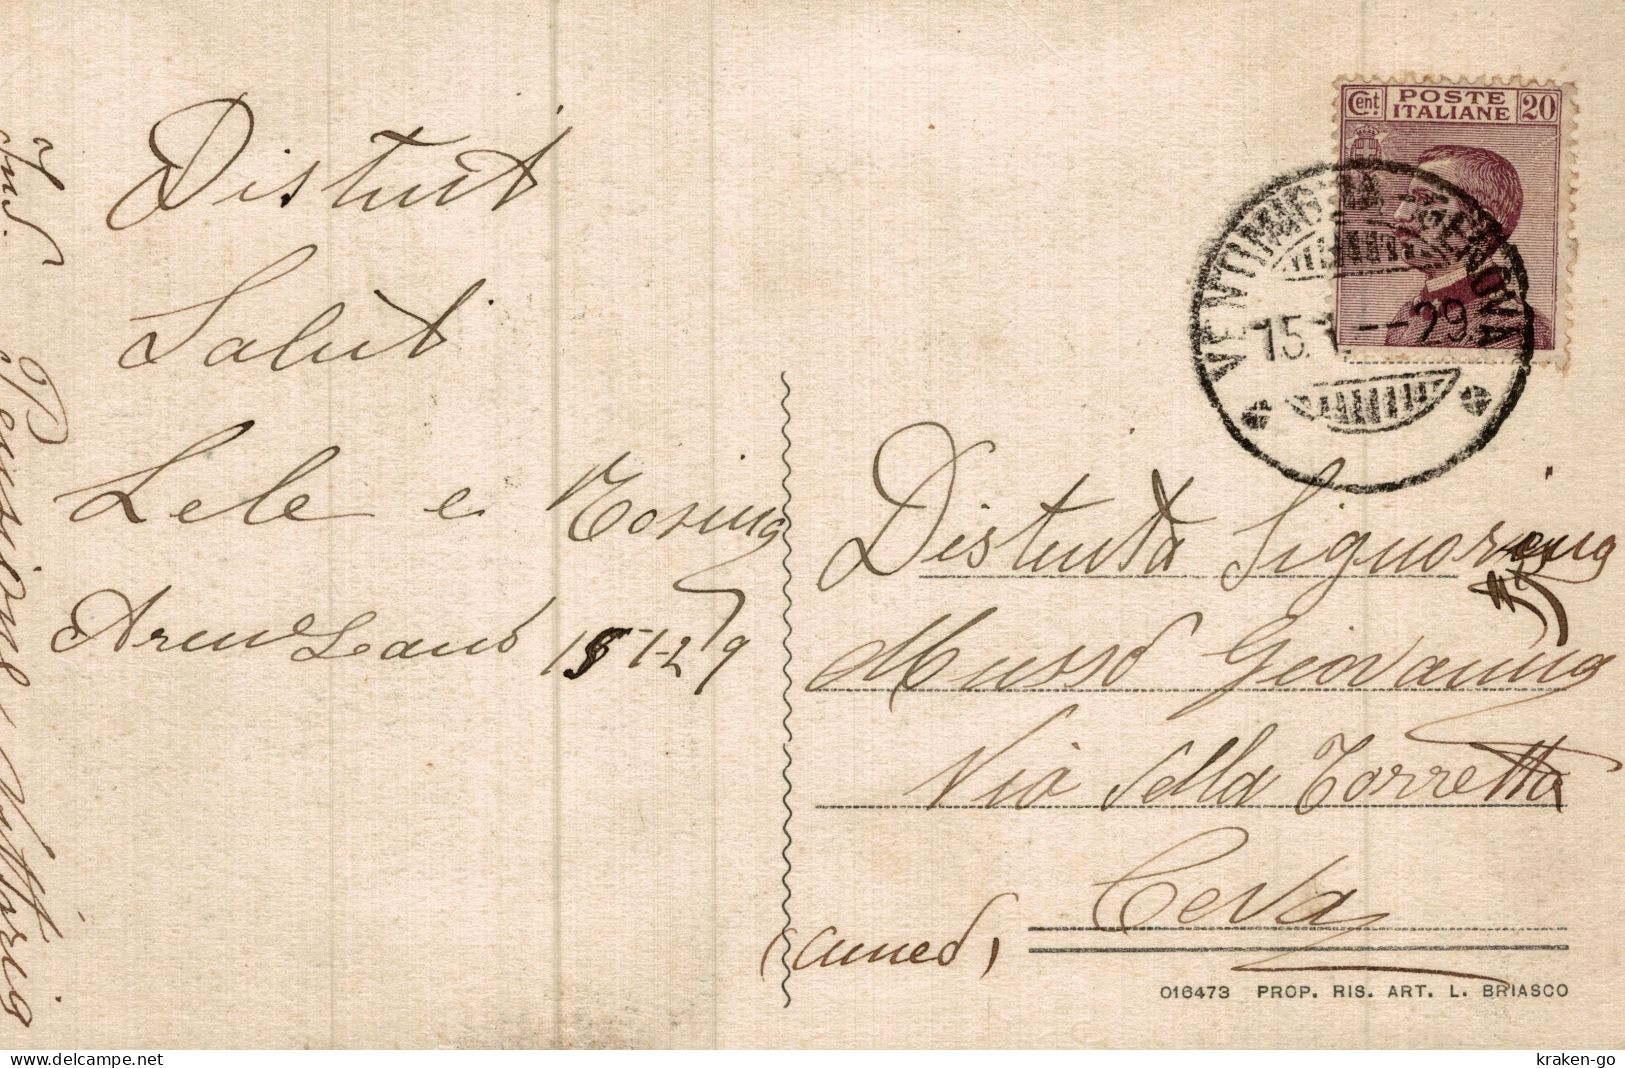 Cent. POSTE ITALIANE 20
VENTIMIGLIA-GENOVA
15.1.--29
Distinti
Saluti
Lele e Rosina
15-1-29
Ind. Pensione Vittoria
Distinta Signorina
Musso Giovanna
Via della Torretta
Ceva
(Cuneo)
016473 PROP. RIS. ART. L. BRIASCO
delcampe.net
kraken-go